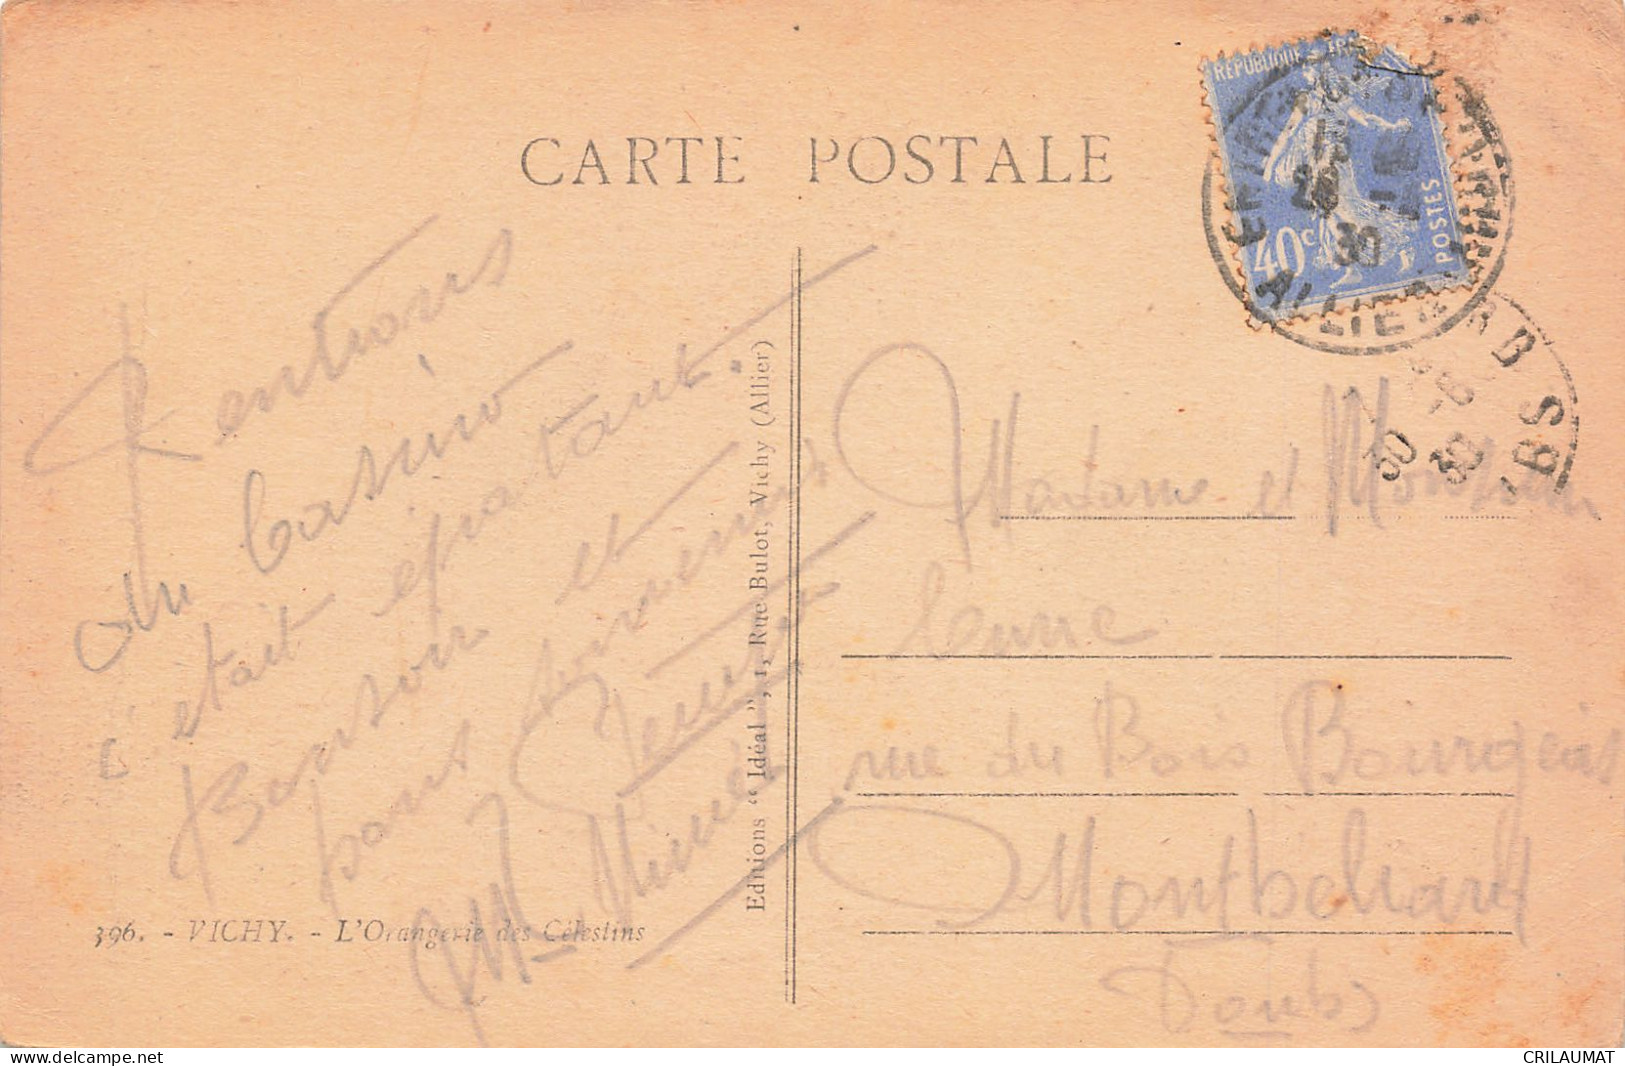 CARTE POSTALE
REPUBLIQUE FRA
40c
POSTES
ALLIER
30
30
30
Rentrons
du Casino
c'était épatant.
Bonsoir et
bons souvenirs
396. - VICHY. - L'Orangerie des Célestins
Editions "Idéal", 1, Rue Bulot, Vichy (Allier)
Madame et Monsieur
rue du Bois Bourgeois
Montbéliard
Doubs
www.delcampe.net
CRILAUMAT